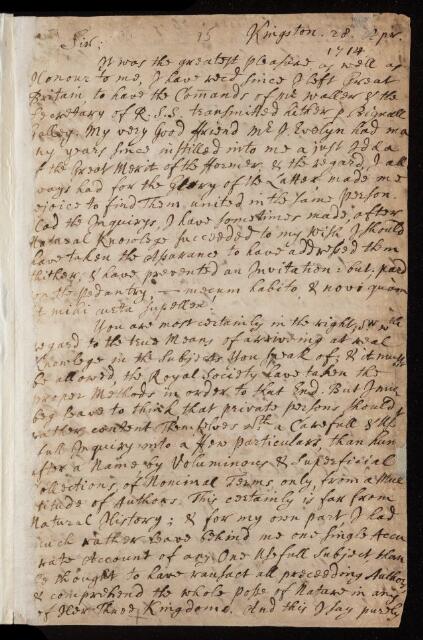 15 Kingston. 28. Apr.
1714
Sir;
It was the greatest pleasure as well as
Honour to me, I have recd since I left Great
Britain, to have the Comands of Mr waller & the
Secretary of R.S.s transmitted hither
My very good friend Mr J. Evelyn had ma
ny years since instilled into me a just Idea
of the Great Merit of the Former, & the regard I all
ways had for the Glory of the Latter made me
rejoice to find Them united in the same person.
Had the Inquirys, I have sometimes made after
Natural Knowlege succeeded to my wish I should
have taken the Assurance to have addressed them
thither, & have prevented an Invitation: but, pard
on the Pedantry, — mecum habito & novi quam
sit mihi curta supellex.
You are most certainly in the right, Sr with
regard to the true Means of arriveing at real
Knowlege in the Subjects You speak of; & it must
be allowed, the Royal Society have taken the
proper Methods in order to that End. But I must
beg leave to think that private persons should
rather content Themselves wth a Carefull & Use
full Inquiry into a few particulars, than hun
after a Name by Voluminous & Superficial
Collections of Nominal Terms only, from a Mul
titude of Authors. This certainly is far from
Natural History; & for my own part, I had
much rather leave behind me one single Accu
rate Account of any One Usefull Subject than
be thought to have ransact all preceeding Authors
& comprehend the whole Posse of Nature in any
of Her Three Kingdoms. And this I say purely